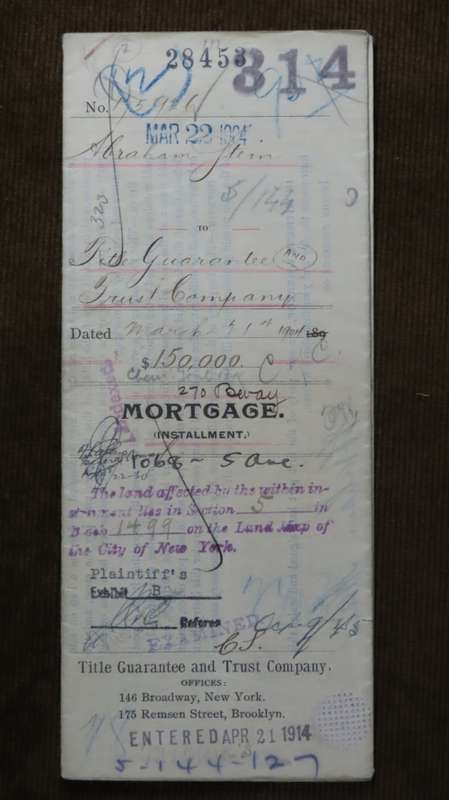 28453
314
No.
MAR 22 1904
Abraham Stein
$/144
TO
Title Guarantee AND
Trust Company
Dated March 21st 1904 189
$150,000.
270 Bway
MORTGAGE.
(INSTALLMENT.)
1068 - 5 Ave.
The land affected by the within in-
strument lies in Section 5 in
Block 1499 on the Land Map of
the City of New York.
Plaintiff's
Exhibit B
Referee
EXAMINED
Title Guarantee and Trust Company.
OFFICES:
146 Broadway, New York.
175 Remsen Street, Brooklyn.
ENTERED APR 21 1914
5-144-127